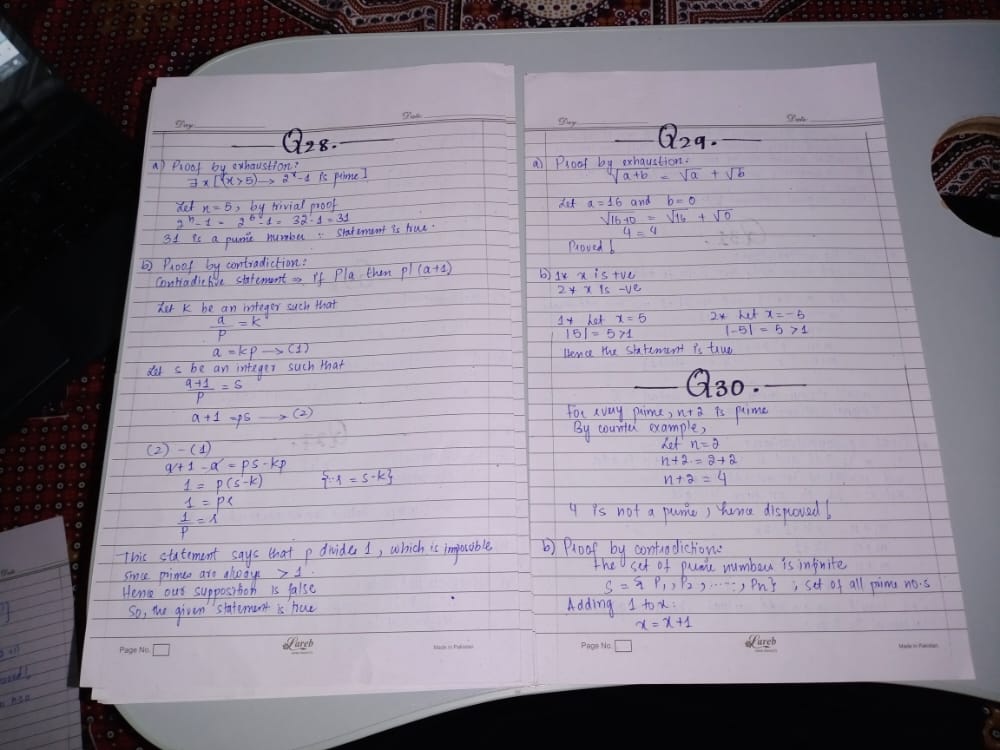 Day
Date
Q28.
a) Proof by exhaustion:
∃x[(x>5) → 2ˣ-1 is prime]
Let n=5, by trivial proof
2ⁿ-1 = 2⁵-1 = 32-1=31
31 is a prime number ∵ statement is true.
b) Proof by contradiction:
Contradictive statement ⇒ if P|a then p|(a+1)
Let k be an integer such that
a/p = k
a = kp → (1)
Let s be an integer such that
a+1/p = s
a+1 = ps → (2)
(2) - (1)
a+1-a = ps-kp
1 = p(s-k) {∵ r = s-k}
1 = pr
1/p = r
This statement says that p divides 1, which is impossible
since primes are always > 1.
Hence our supposition is false
So, the given statement is true
Page No.
Lareb
Made in Pakistan
Day
Date
Q29.
a) Proof by exhaustion:
√a+b = √a + √b
Let a=16 and b=0
√16+0 = √16 + √0
4=4
Proved!
b) 1* x is +ve
2* x is -ve
1* Let x=5 2* Let x=-5
|5| = 5>1 |-5| = 5 >1
Hence the statement is true
Q30.
For every prime, n+2 is prime
By counter example,
Let n=2
n+2 = 2+2
n+2 = 4
4 is not a prime, hence disproved!
b) Proof by contradiction:
The set of prime numbers is infinite
S = { P₁, P₂, ....., Pn} ; set of all prime no.s
Adding 1 to x:
x = x+1
Page No.
Lareb
Made in Pakistan